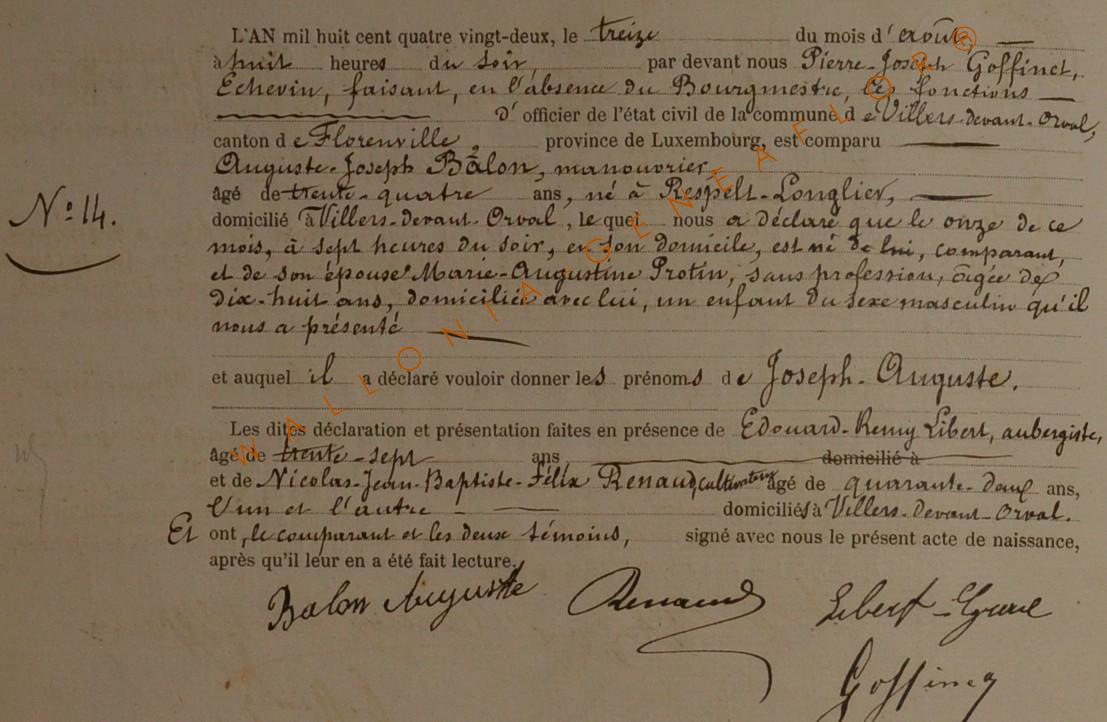 L'AN mil huit cent quatre vingt-deux, le treize du mois d'août
à huit heures du soir, par devant nous Pierre-Joseph Goffinet,
Echevin, faisant, en l'absence du Bourgmestre, les fonctions
d'officier de l'état civil de la commune de Villers-devant-Orval,
canton de Florenville, province de Luxembourg, est comparu
Auguste-Joseph Balon, manouvrier,
âgé de trente-quatre ans, né à Respelt-Longlier,
N° 14.
domicilié à Villers-devant-Orval, lequel nous a déclaré que le onze de ce
mois, à sept heures du soir, en son domicile, est né de lui, comparant,
et de son épouse Marie-Augustine Protin, sans profession, âgée de
dix-huit ans, domiciliée avec lui, un enfant du sexe masculin qu'il
nous a présenté
et auquel il a déclaré vouloir donner les prénoms de Joseph-Auguste.
Les dites déclaration et présentation faites en présence de Edouard-Remy Libert, aubergiste,
âgé de trente-sept ans domicilié à
et de Nicolas-Jean-Baptiste-Félix Renaud, cultivateur âgé de quarante-deux ans,
l'un et l'autre domiciliés à Villers-devant-Orval.
Et ont, le comparant et les deux témoins, signé avec nous le présent acte de naissance,
après qu'il leur en a été fait lecture.
Balon Auguste Renaud Libert
Goffinet